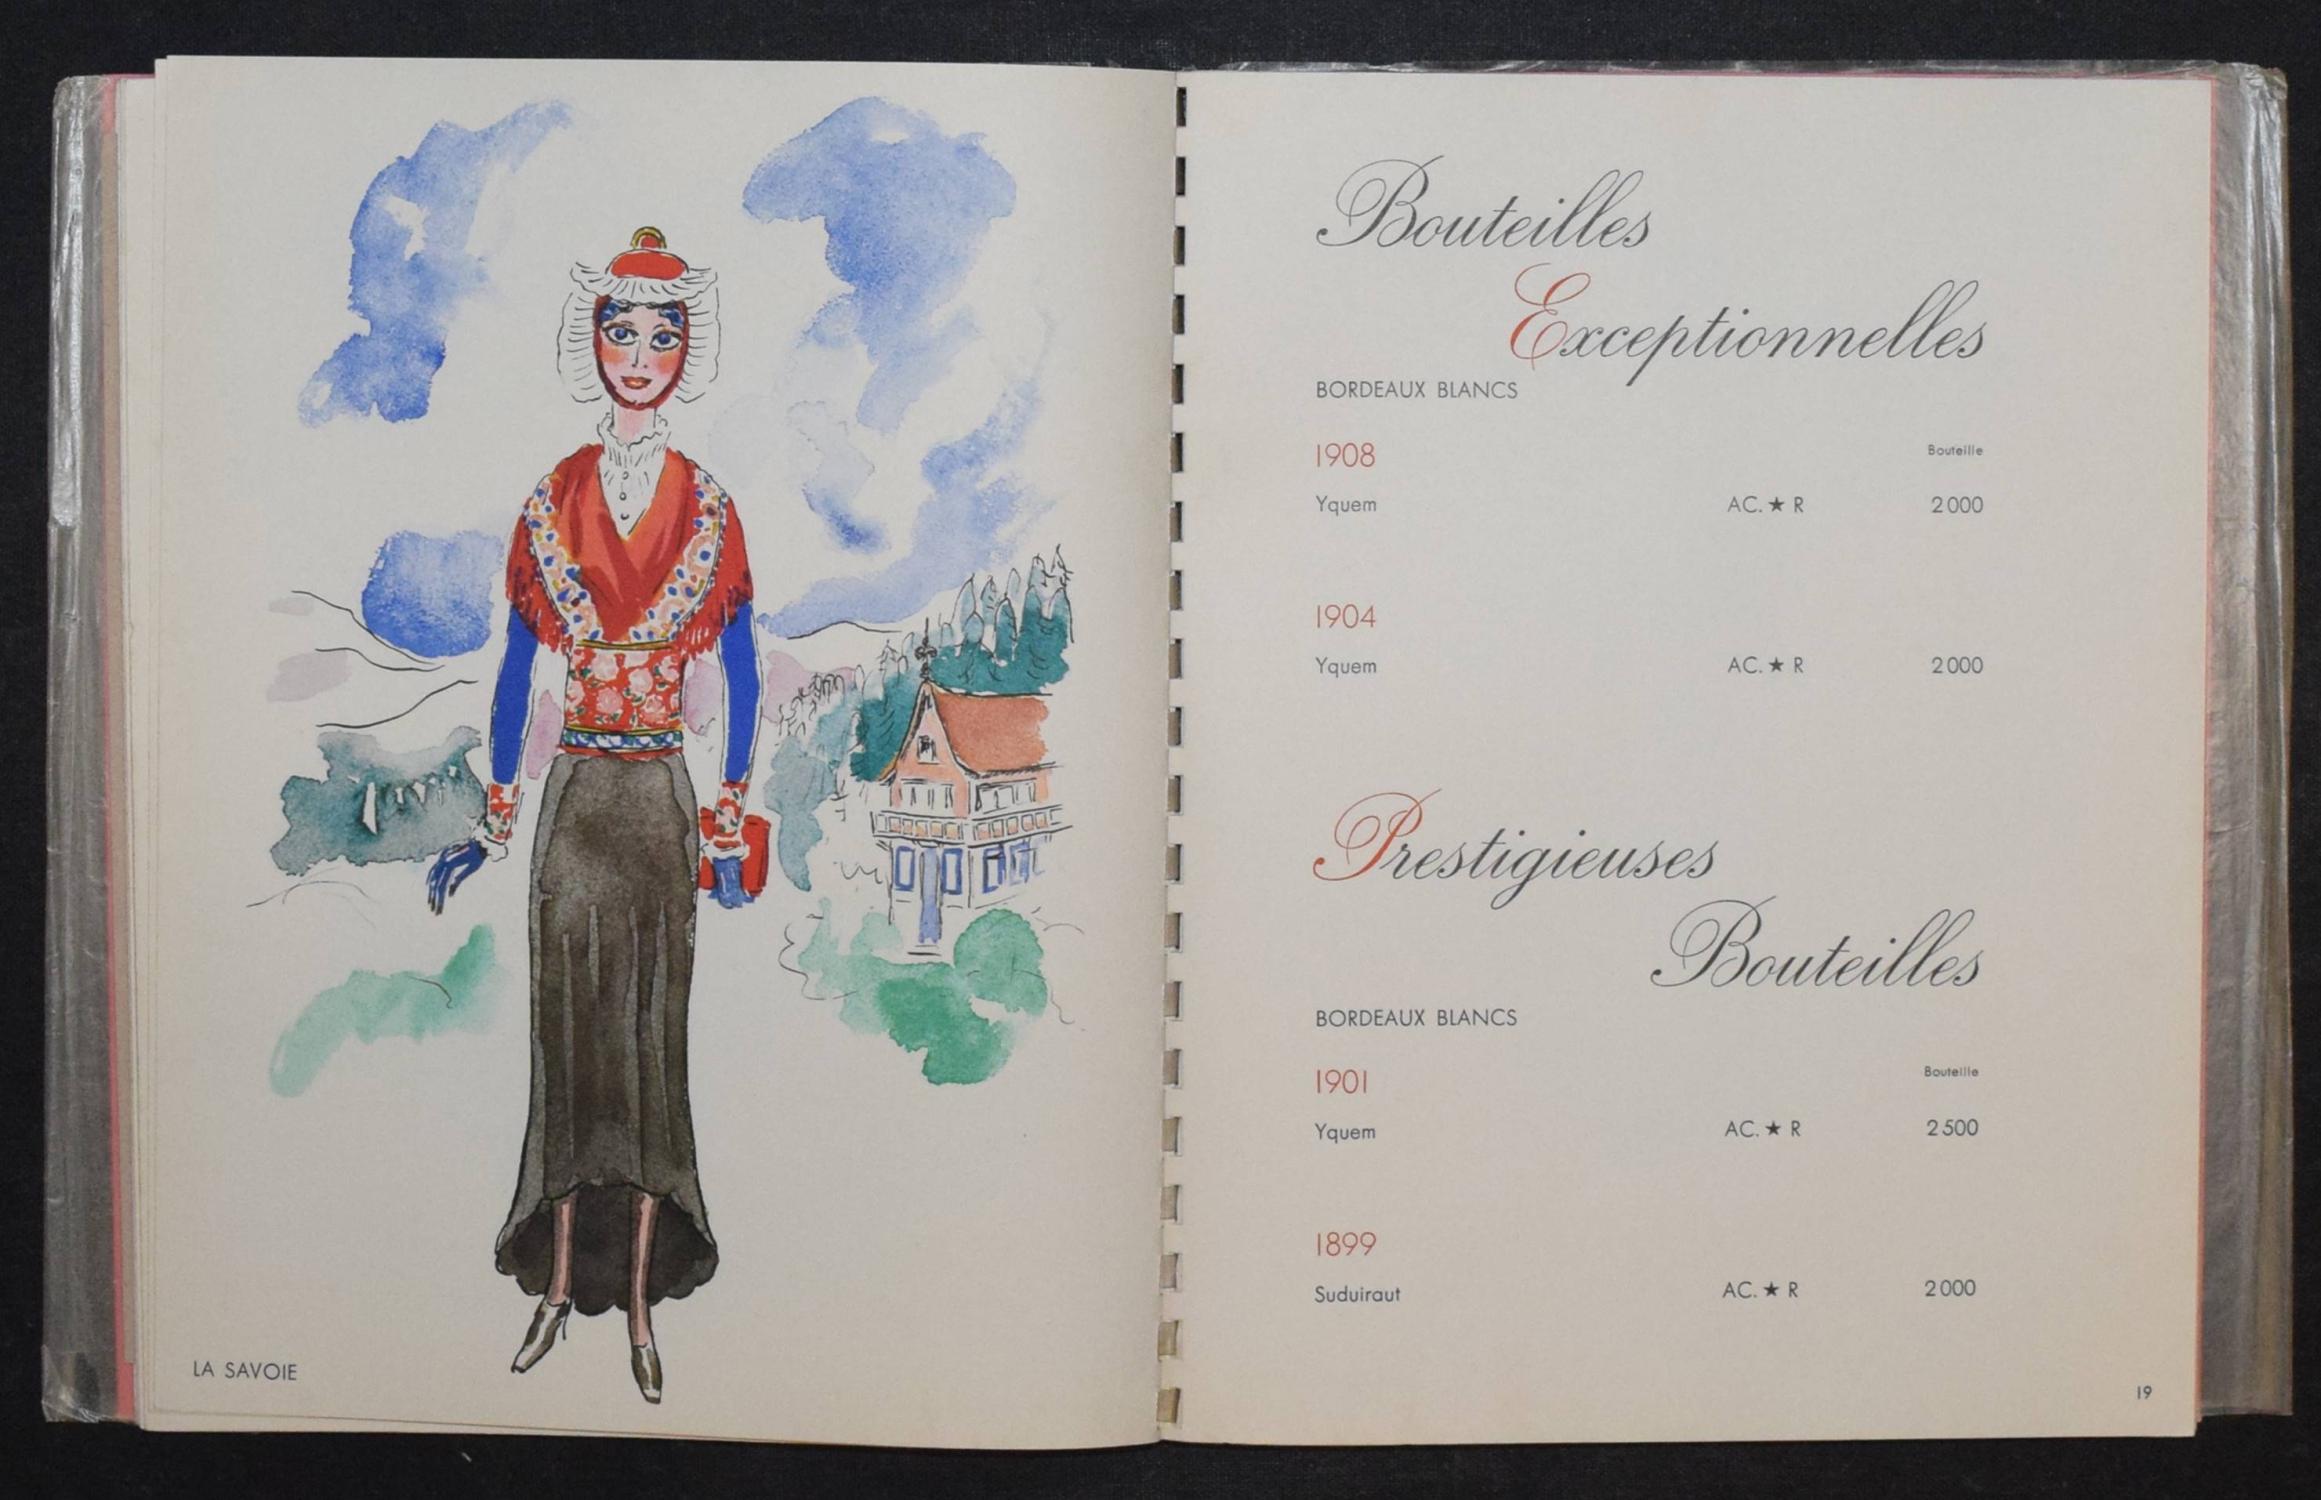 LA SAVOIE
Bouteilles
Exceptionnelles
BORDEAUX BLANCS
1908 Bouteille
Yquem AC. ★ R 2 000
1904
Yquem AC. ★ R 2 000
Prestigieuses
Bouteilles
BORDEAUX BLANCS
1901 Bouteille
Yquem AC. ★ R 2 500
1899
Suduiraut AC. ★ R 2 000
19